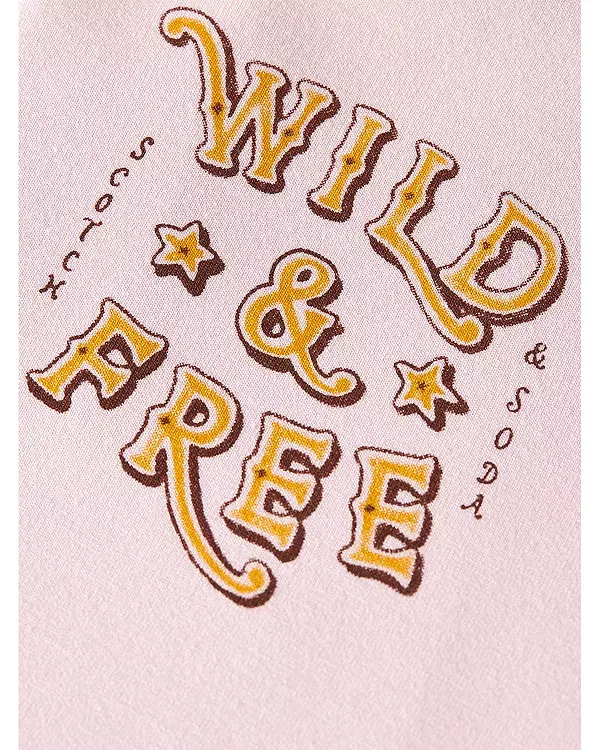 WILD
SCOTCH
&
& SODA
FREE